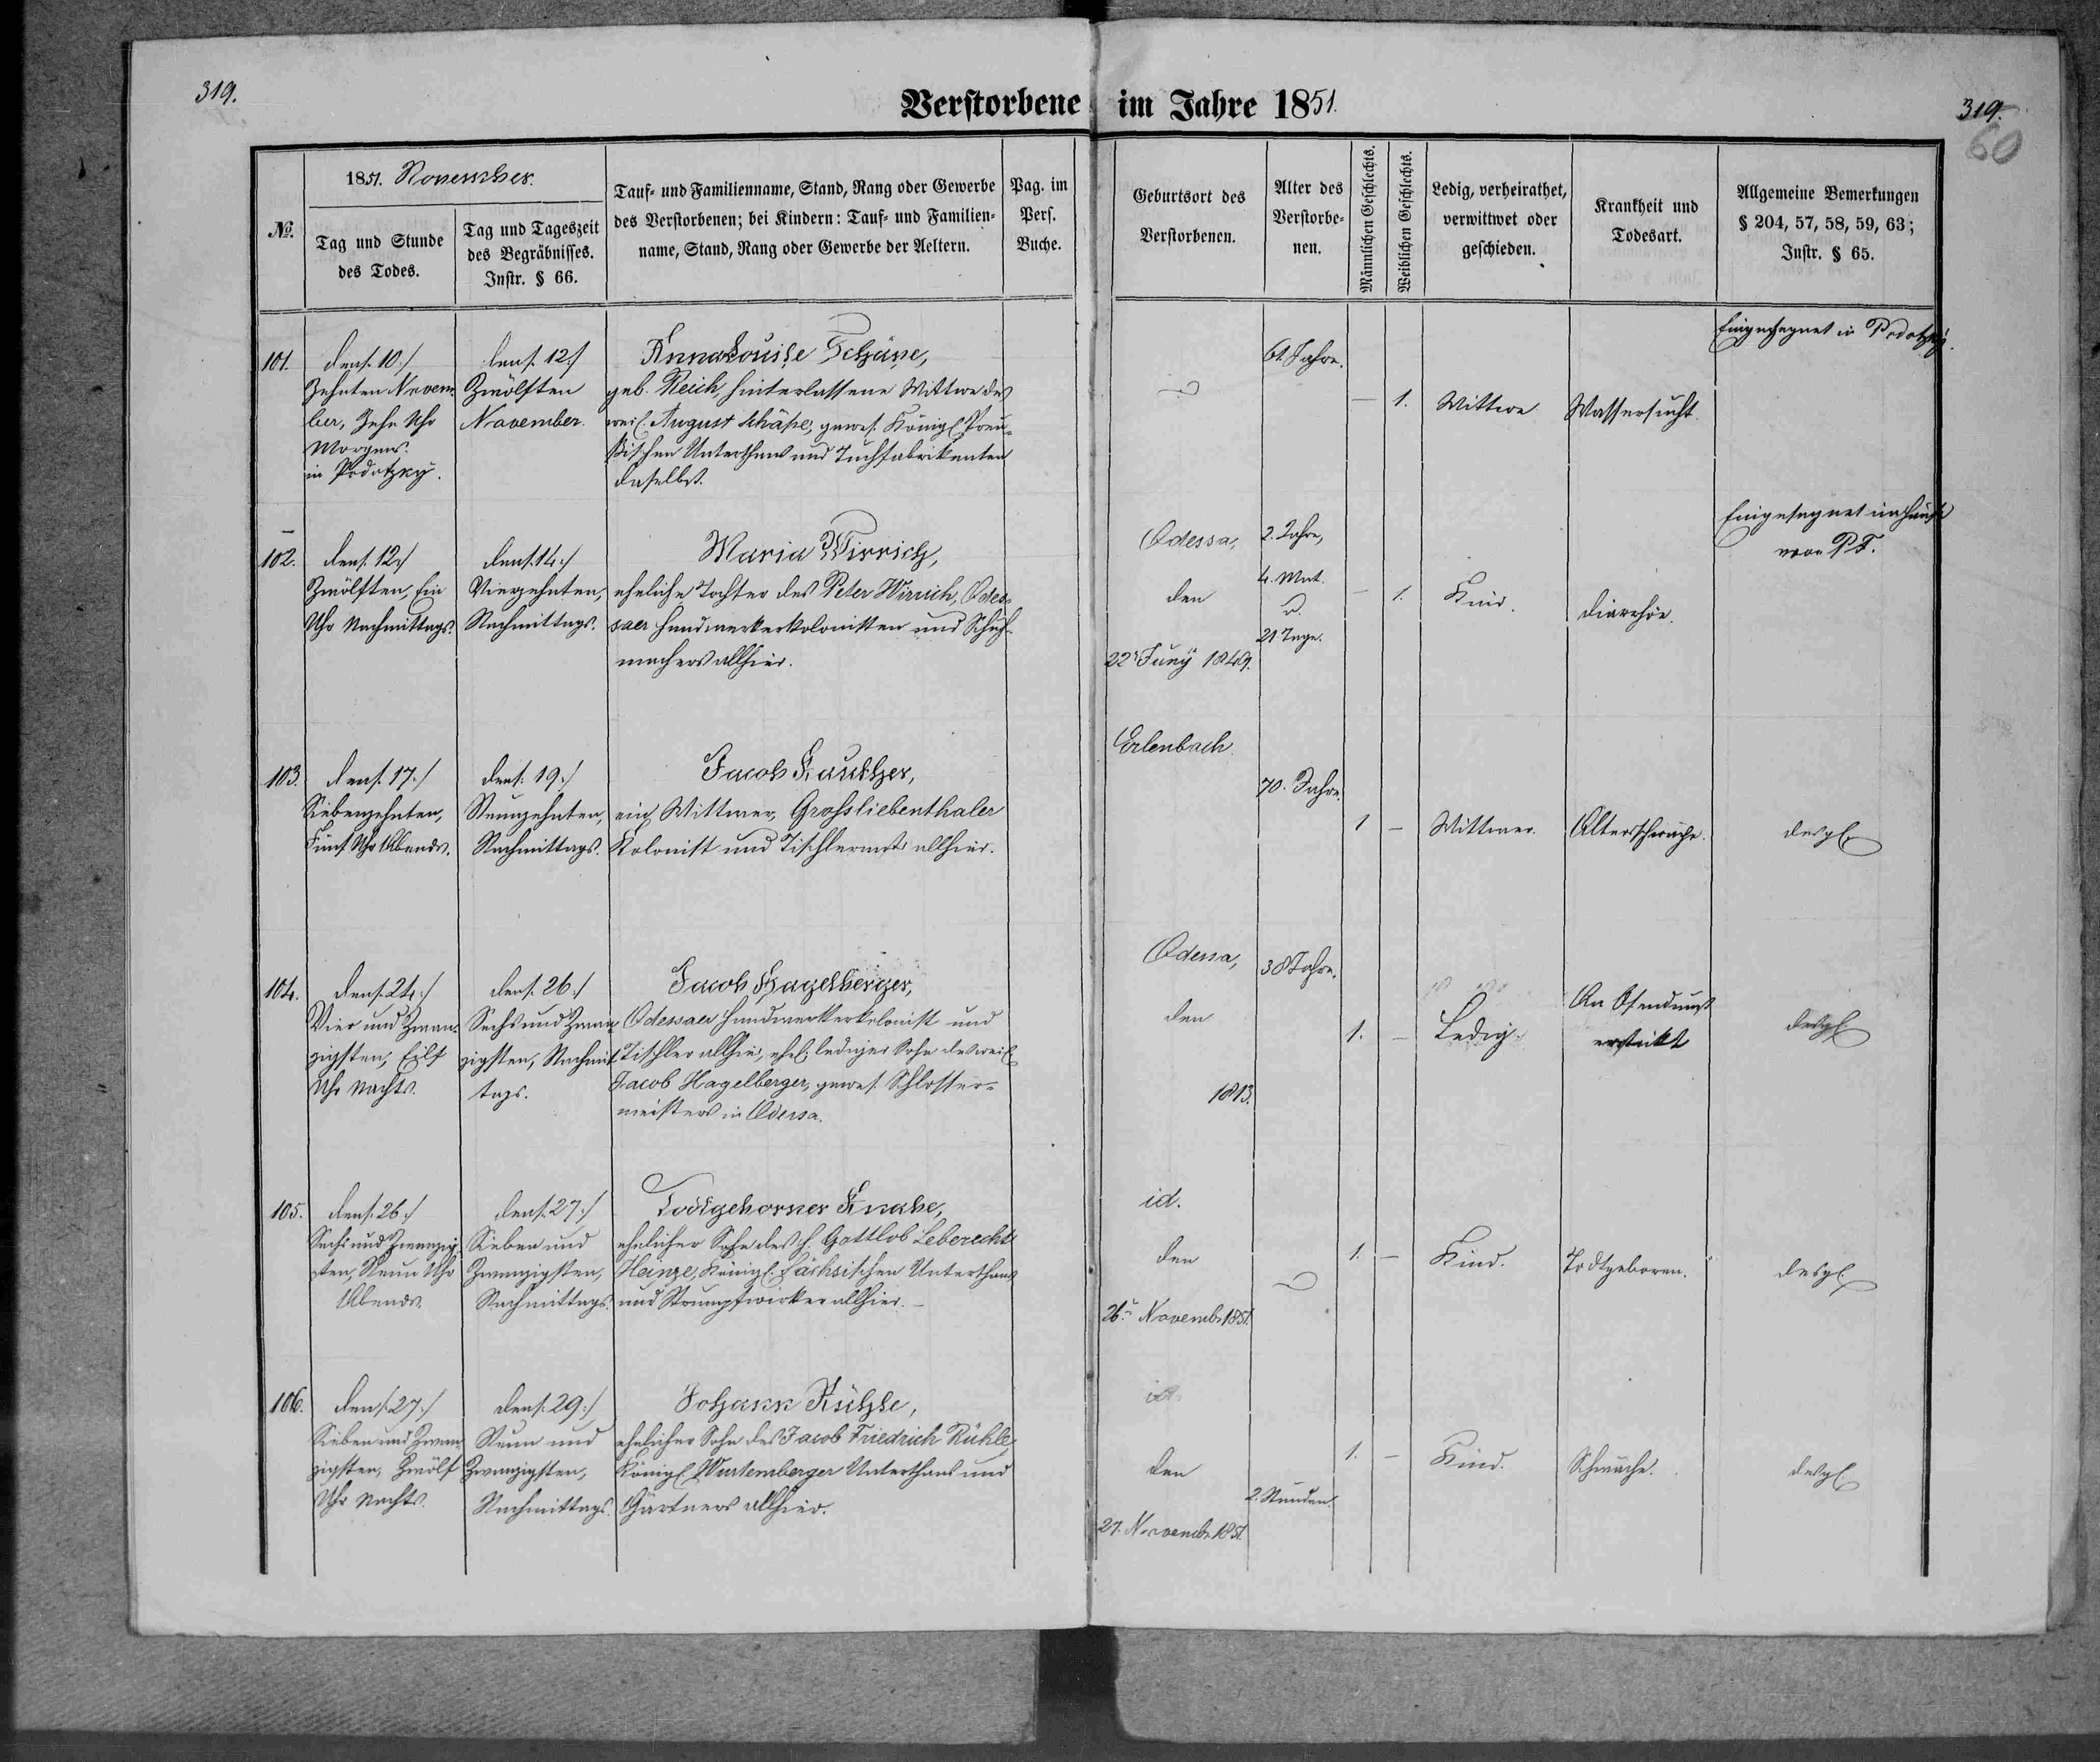 319.
Verstorbene im Jahre 1851.
319.
60
№.
1851. November.
Tag und Stunde
des Todes.
Tag und Tageszeit
des Begräbnisses.
Instr. § 66.
Tauf- und Familienname, Stand, Rang oder Gewerbe
des Verstorbenen; bei Kindern: Tauf- und Familien-
name, Stand, Rang oder Gewerbe der Aeltern.
Pag. im
Pers.
Buche.
Geburtsort des
Verstorbenen.
Alter des
Verstorbe-
nen.
Männlichen Geschlechts.
Weiblichen Geschlechts.
Ledig, verheirathet,
verwittwet oder
geschieden.
Krankheit und
Todesart.
Allgemeine Bemerkungen
§ 204, 57, 58, 59, 63;
Instr. § 65.
101.
den /:10:/
Zehnten Novem-
ber, Zehn Uhr
Morgens.
in Pedotzky.
den /:12:/
Zwölften
November.
Anna Louise Schäpe,
geb. Reich, hinterlassene Wittwe des
weil. August Schäpe, gewes. Königl. Preu-
ßischen Unterthans und Tuchfabrikanten
daselbst.
61. Jahre.
– 1.
Wittwe
Wassersucht.
Eingesegnet in Pedotzky.
102.
den /:12:/
Zwölften, Ein
Uhr Nachmittags.
den /:14:/
Vierzehnten,
Nachmittags.
Maria Wirrich,
eheliche Tochter des Peter Wirrich, Odes-
saer Handwerkerkolonisten und Schuh-
machers allhier.
Odessa,
den
22t Juny 1849.
2. Jahre,
4. Mnt.
u.
21 Tage.
– 1.
Kind.
Diarrhöe.
Eingesegnet im Hause
von P. F.
103.
den /:17:/
Siebenzehnten,
Fünf Uhr Abends.
den /:19:/
Neunzehnten,
Nachmittags.
Jacob Kautzer,
ein Wittwer, Grossliebenthaler
Kolonist und Tischlermstr allhier.
Erlenbach.
70. Jahre.
1 –
Wittwer.
Altersschwäche.
desgl.
104.
den /:24:/
Vier und Zwan-
zigsten, Eilf
Uhr Nachts.
den /:26:/
Sechs und Zwan-
zigsten, Nachmit-
tags.
Jacob Hagelberger,
Odessaer Handwerkerkolonist und
Tischler allhier, ehel. lediger Sohn des weil.
Jacob Hagelberger, gewes. Schlosser-
meisters in Odessa.
Odessa,
den
1813.
38 Jahre.
1. –
Ledig.
An Ofendunst
erstickt
desgl.
105.
den /:26:/
Sechs und Zwanzig-
sten, Neun Uhr
Abends.
den /:27:/
Sieben und
Zwanzigsten,
Nachmittags.
Todtgeborner Knabe,
ehelicher Sohn des H. Gottlob Leberecht
Heinze, Königl. Sächsischen Unterthans
und Strumpfwirker allhier. –
id.
den
26t Novemb. 1851.
1. –
Kind.
Todtgeboren.
desgl.
106.
den /:27:/
Sieben und Zwan-
zigsten, Zwölf
Uhr Nachts.
den /:29:/
Neun und
Zwanzigsten,
Nachmittags.
Johann Rühle,
ehelicher Sohn des Jacob Friedrich Rühle,
Königl. Wurtemberger Unterthans und
Gärtners allhier.
id.
den
27. Novemb. 1851.
2. Stunden.
1. –
Kind.
Schwäche.
desgl.